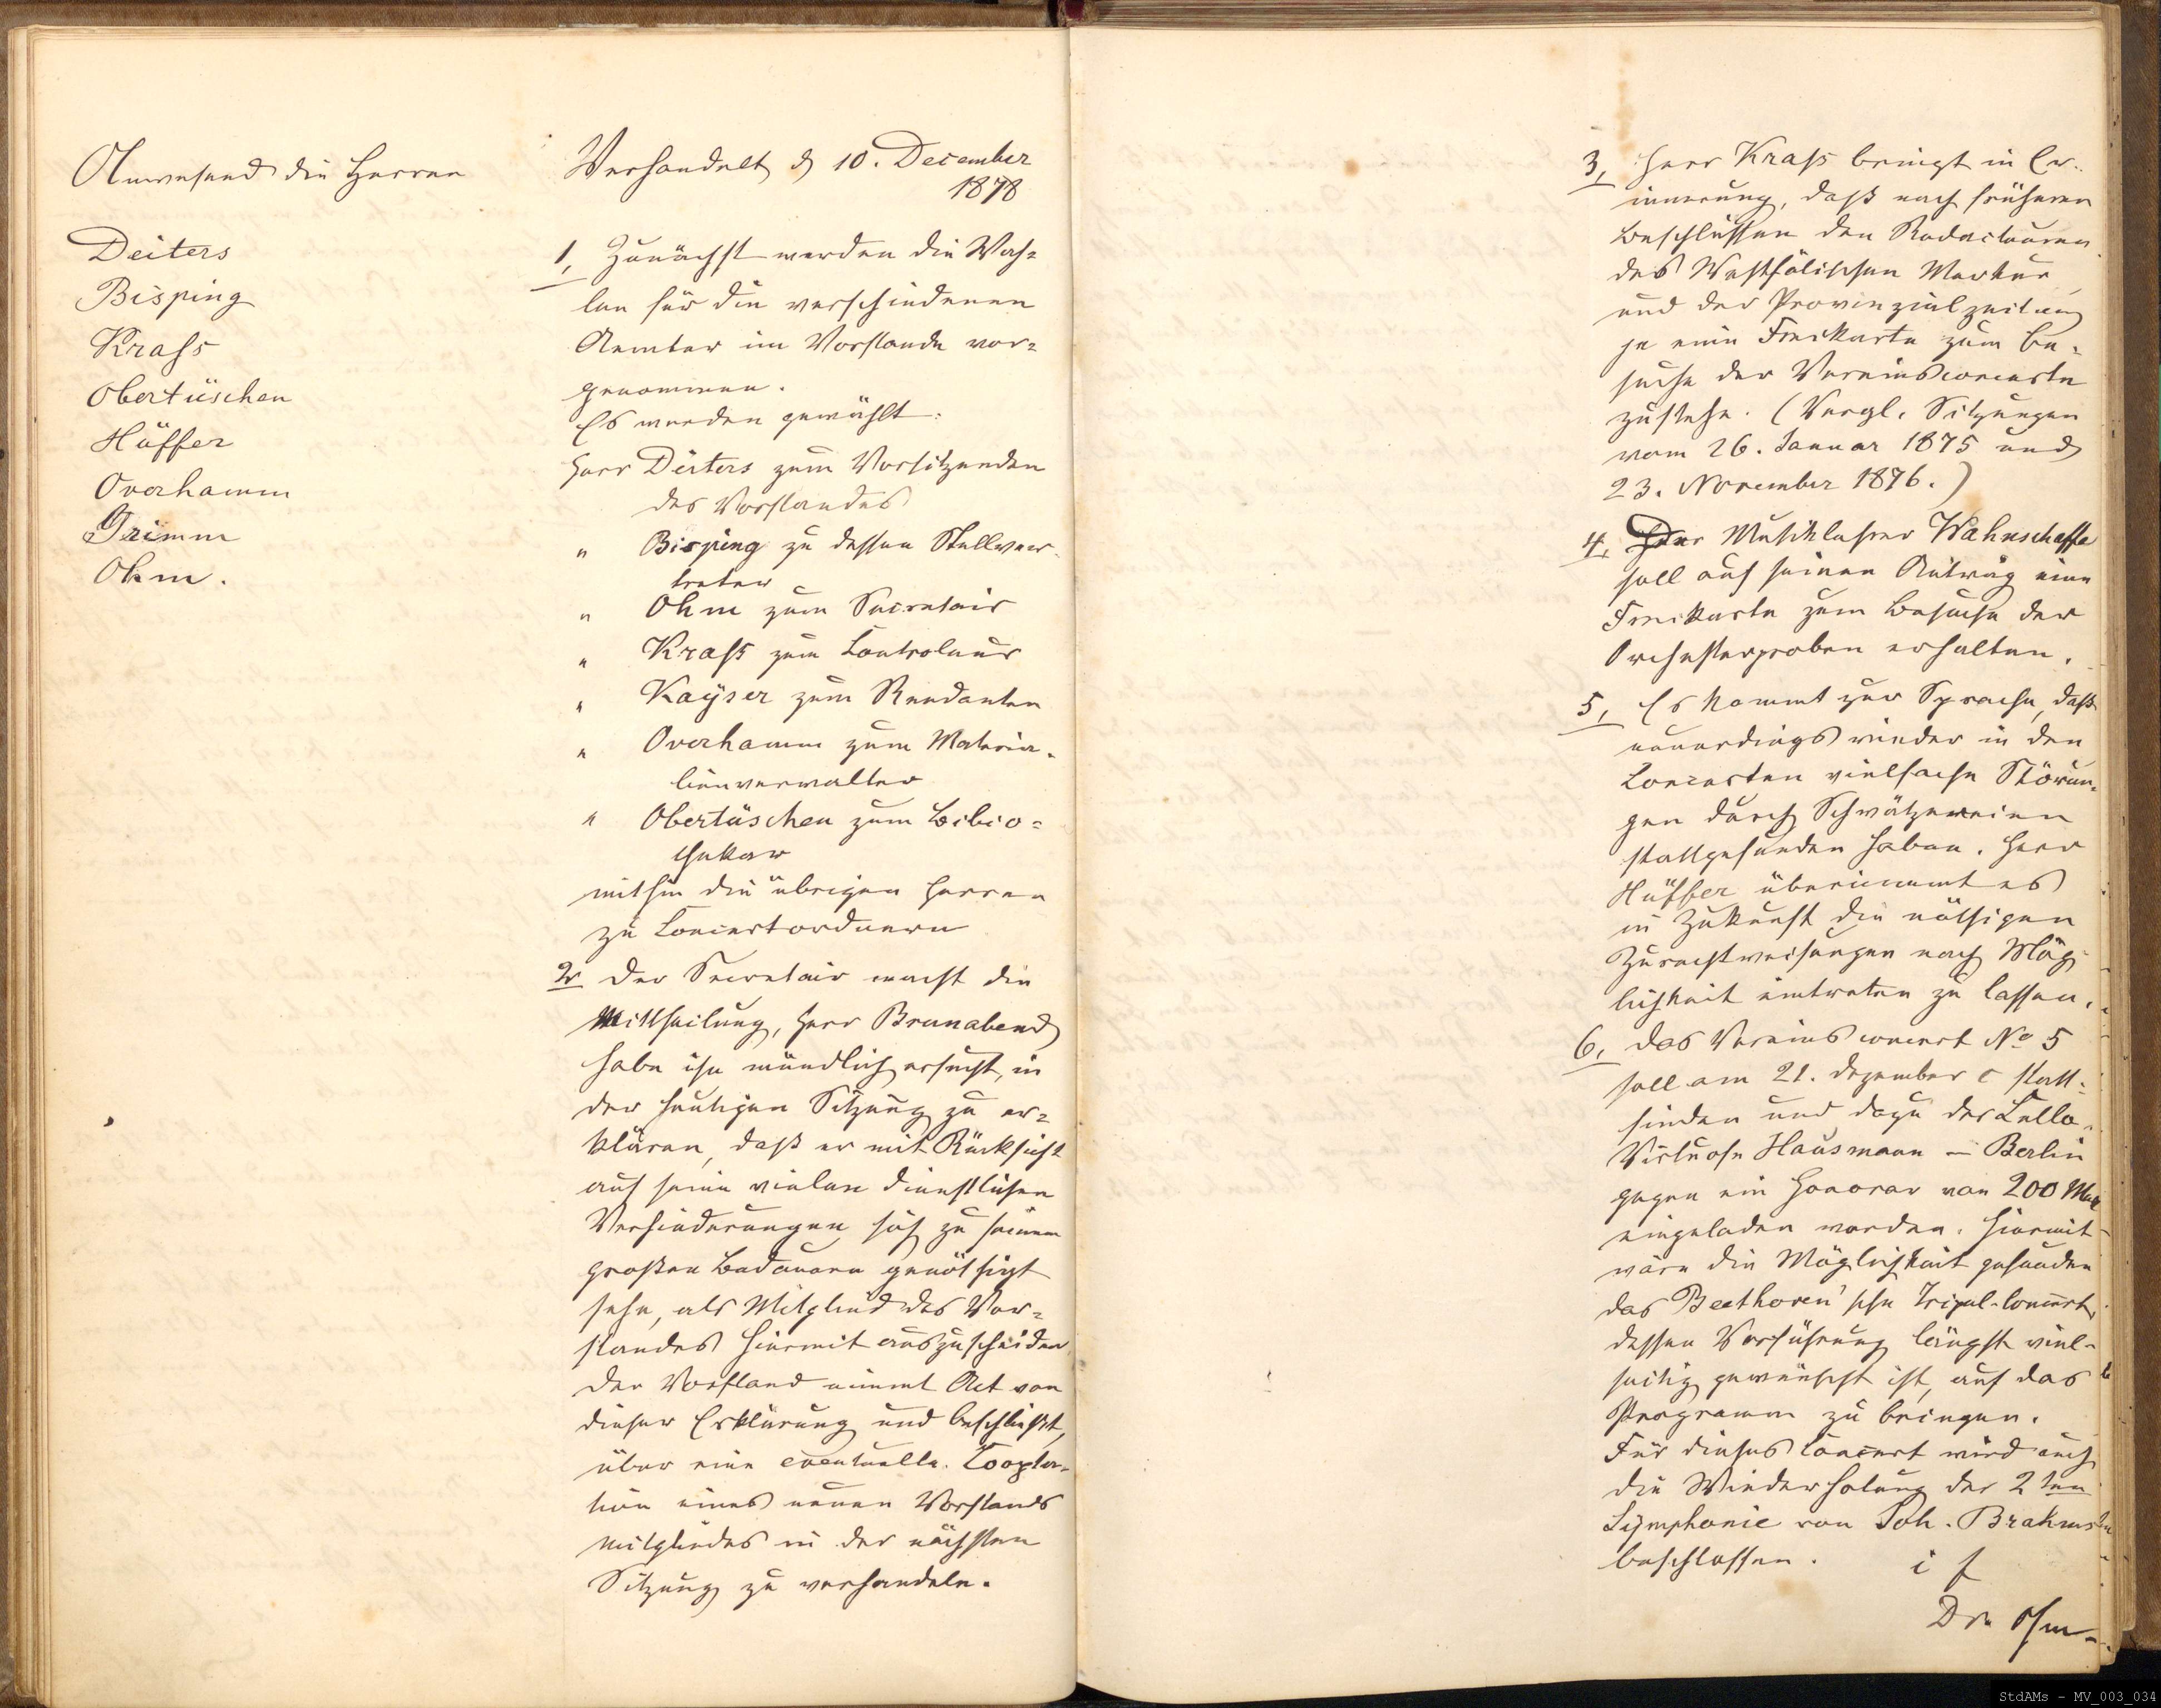 Anwesend die Herren
Deiters
Bisping
Krass
Obertüschen
Hüffer
Overhamm
Grimm
Ohm.
Verhandelt d 10. December
1878
1, Zunächst werden die Wah=
len für die verschiedenen
Aemter im Vorstande vor=
genommen.
Es werden gewählt:
Herr Deiters zum Vorsitzenden
des Vorstandes
" Bisping zu dessen Stellver-
treter
" Ohm zum Secretair
" Kraß zum Controleur
" Kayser zum Rendanten
" Overhamm zum Materia-
lienverwalter
" Obertüschen zum Biblio=
thekar
mithin die übrigen Herren
zu Concertordnern
2, Der Secretair macht die
Mittheilung, Herr Brunabend
habe ihn mündlich ersucht, in
der heutigen Sitzung zu er=
klären, daß er mit Rücksicht
auf seine vielen dienstlichen
Verhinderungen sich zu seinem
großen Bedauern genöthigt
sehe, als Mitglied des Vor=
standes hiermit auszuscheiden
Der Vorstand nimmt Act von
dieser Erklärung und beschließt,
über eine eventuelle Coopta-
tion eines neuen Vorstands
mitgliedes in der nächsten
Sitzung zu verhandeln.
3, Herr Kraß bringt in Er-
innerung, daß nach früheren
Beschlüssen den Redacteuren
des Westfälischen Merkur
und der Provinzialzeitung
je eine Freikarte zum Be-
suche der Vereinsconcerte
zustehe. (Vergl. Sitzungen
vom 26. Januar 1875 und
23. November 1876.)
4, Der Musiklehrer Wahnschaffe
soll auf seinen Antrag eine
Freikarte zum Besuche der
Orchesterproben erhalten.
5, Es kommt zur Sprache, daß
neuerdings wieder in den
Concerten vielfache Störun-
gen durch Schwätzereien
stattgefunden haben. Herr
Hüffer übernimmt es
in Zukunft die nöthigen
Zurechtweisungen nach Mög-
lichkeit eintreten zu lassen.
6, Das Vereinsconcert No 5
soll am 21. Dezember c statt-
finden und dazu der Cello-
Virtuose Hausmann - Berlin
gegen ein Honorar von 200 Mark
eingeladen werden. Hiermit
wäre die Möglichkeit gefunden
das Beethoven'sche Tripel-Concert,
dessen Vorführung längst viel-
seitig gewünscht ist, auf das
Programm zu bringen.
Für dieses Concert wird auch
die Wiederholung der 2ten
Symphonie von Joh. Brahms
beschlossen. i f
Dr. Ohm.
StdAMs - MV_003_034